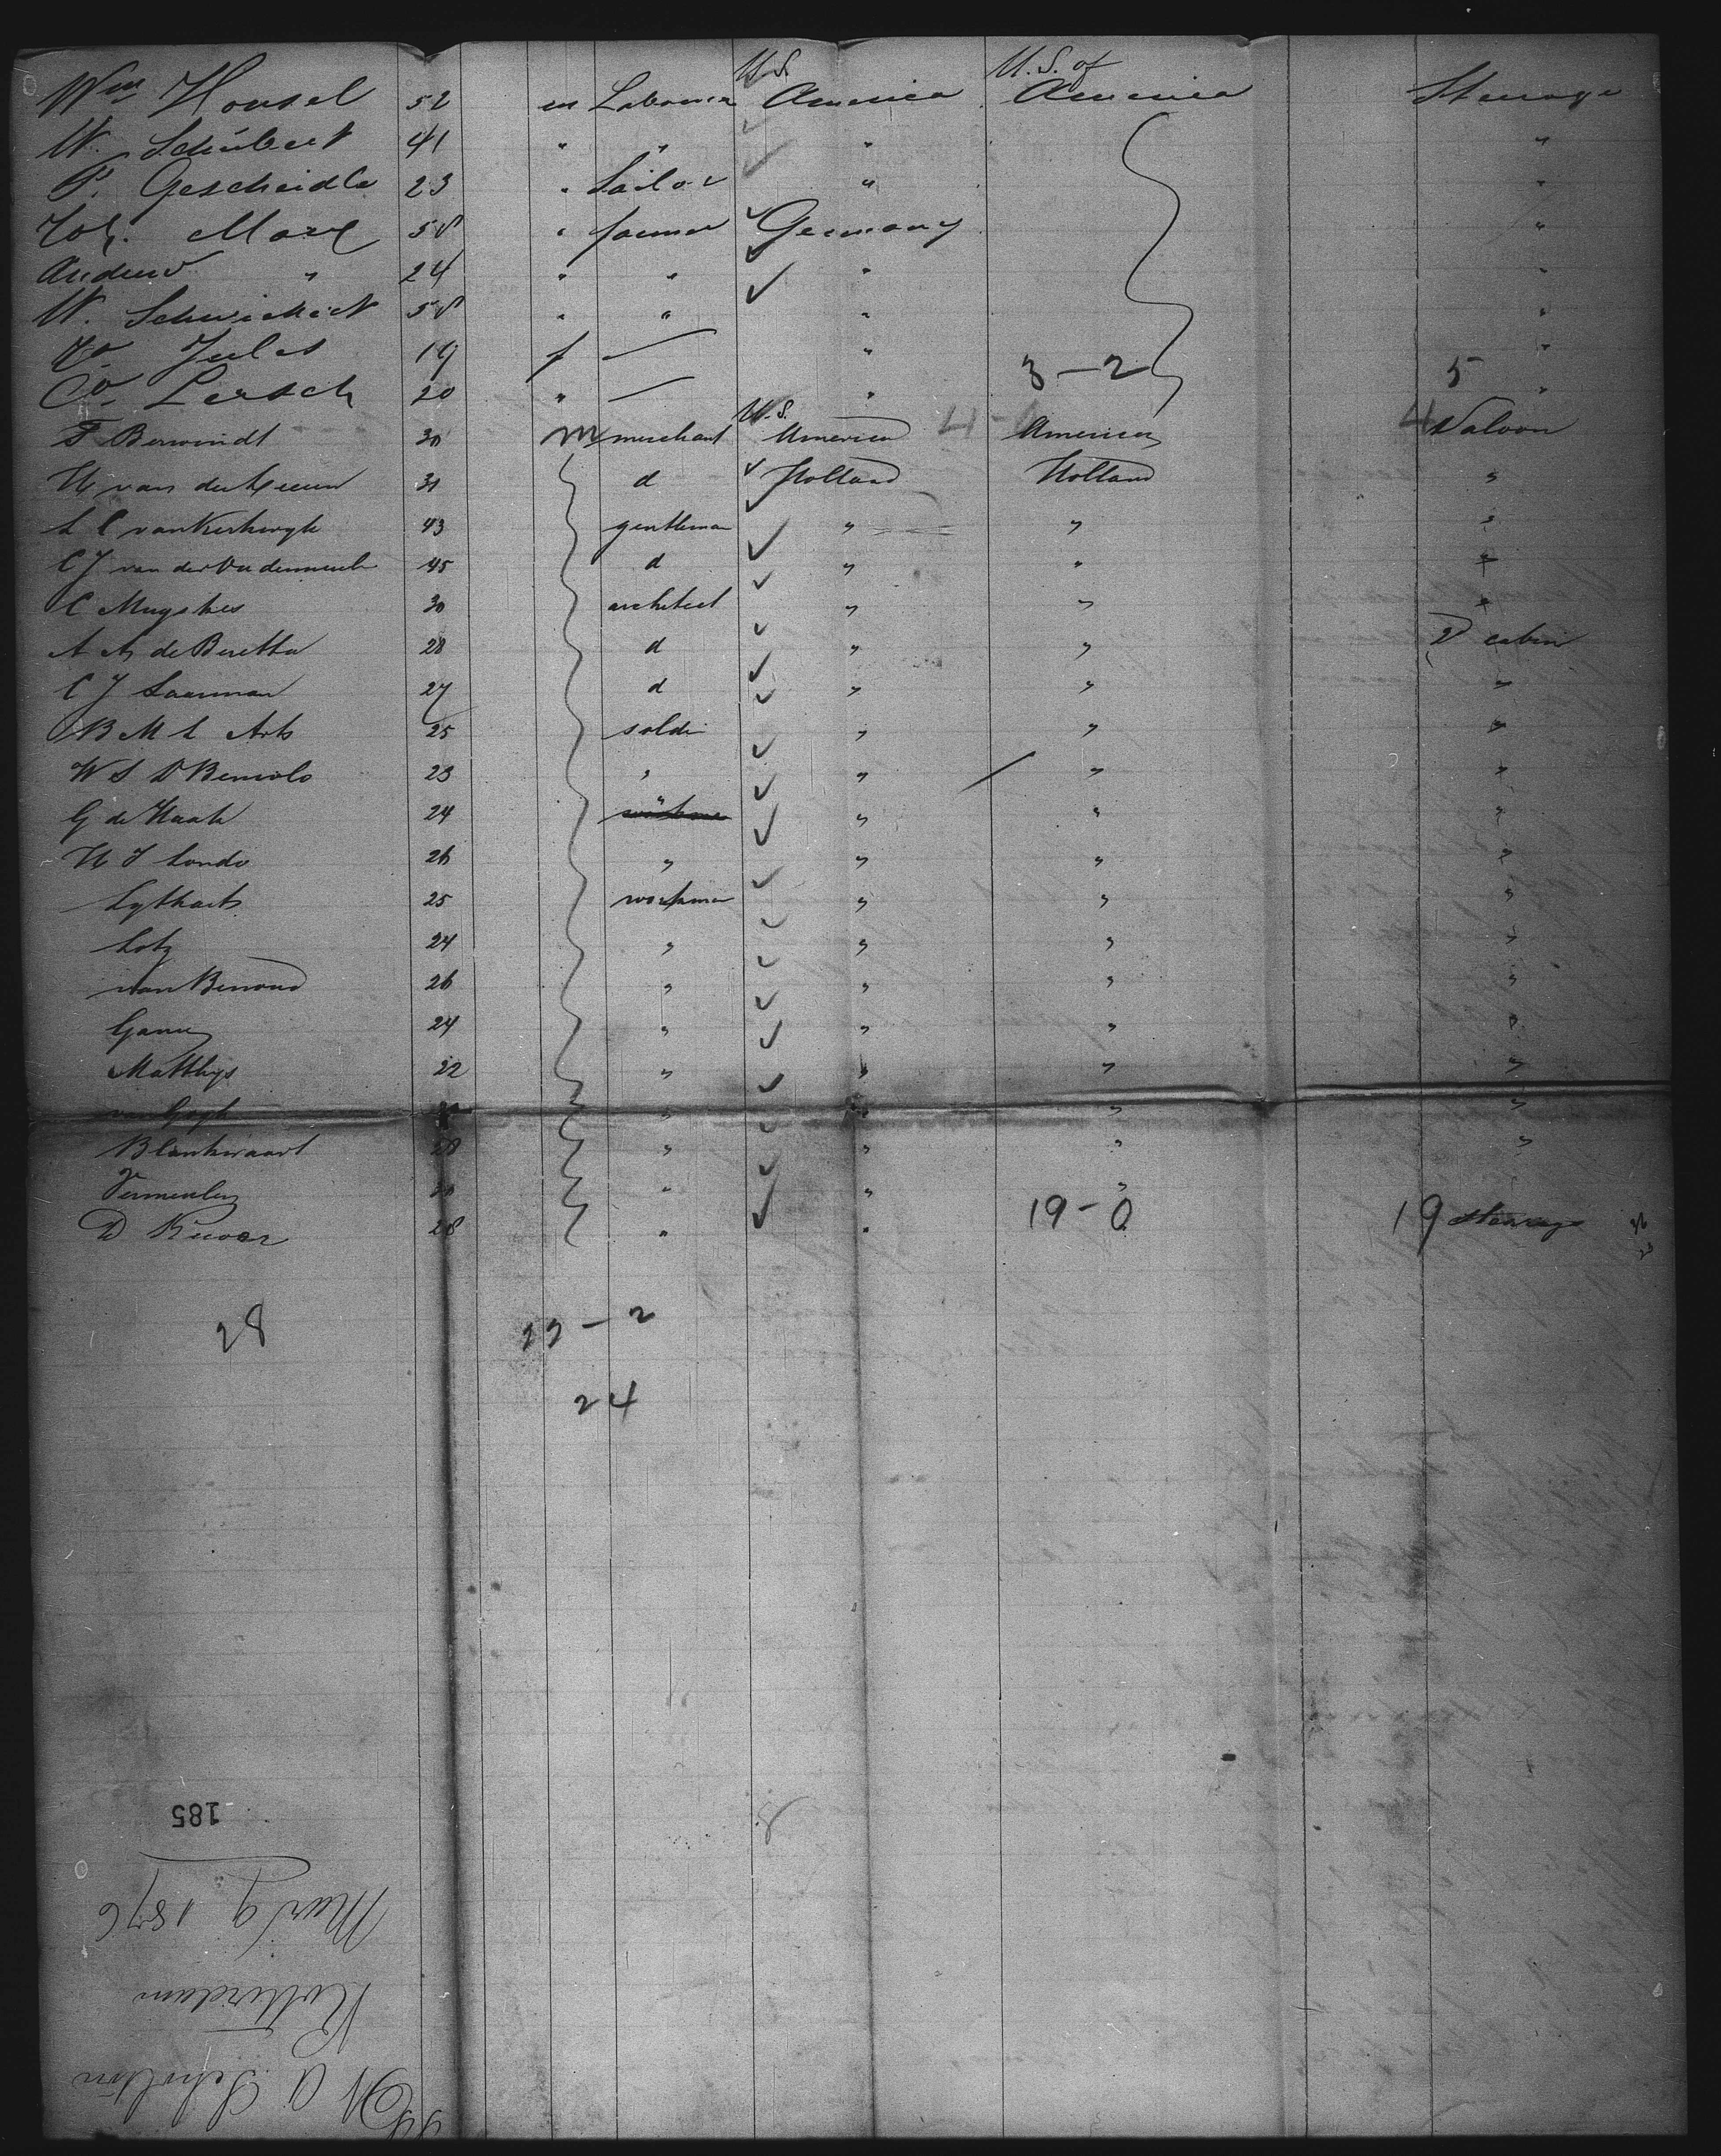 U.S. U.S. of
Wm Housel 52 m Laborer America America Steerage
W. Schubert 41 " " " "
P. Gescheidle 23 " Sailor " "
Joh. Marx 58 " farmer Germany "
Andrew " 24 " " " "
W. Schwickert 58 " " " "
Jules 19 f — " "
Lersch 20 " — " 3-2 5 "
U.S.
F Berwindt 30 m merchant America 4-0 America 4 Saloon
H van der Leeuw 31 d Holland Holland "
L C van Kerkwyk 43 gentleman " " "
C J van der 45 d " " "
C Muysken 30 architect " " "
A A de Beretta 28 d " " 2d cabin
C J Saarman 27 d " " "
B M L Arts 25 soldi " " "
W S D 23 " " " "
G de Haak 24 " " " "
H J Londo 26 " " " "
Lythart 25 workman " " "
Lotz 24 " " " "
van 26 " " " "
24 " " " "
Matthys 22 " " " "
van Gogh " " " "
Blankwaart 28 " " " "
Vermeulen 30 " " "
D 28 " " 19-0 19 steerage
28 22-2
24
185
Mar 9 1876
Rotterdam
SS W A Scholten